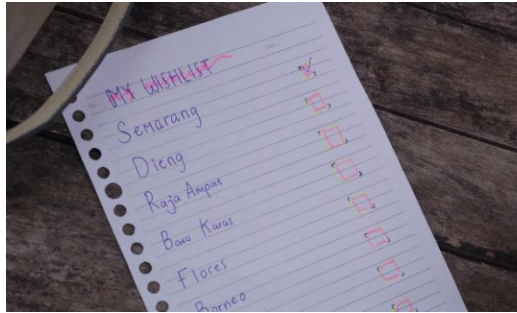 MY WISHLIST
Semarang
Dieng
Raja Ampat
Batu Karas
Flores
Borneo